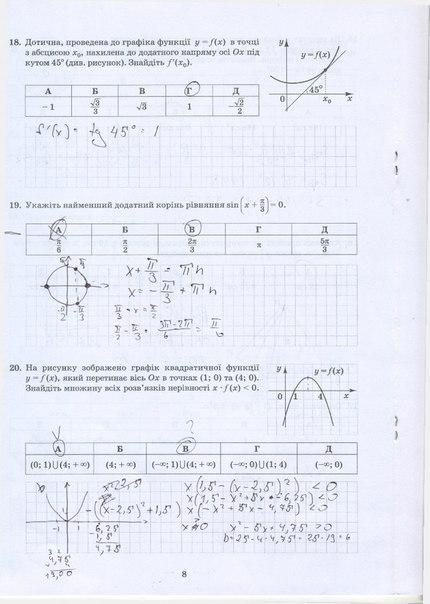 18. Дотична, проведена до графіка функції y = f(x) в точці
з абсцисою x₀, нахилена до додатного напряму осі Ox під
кутом 45° (див. рисунок). Знайдіть f′(x₀).
y
y = f(x)
45°
0
x₀
x
А Б В Г Д
−1 √3/3 √3 1 −√2/2
f'(x) = tg 45° = 1
19. Укажіть найменший додатний корінь рівняння sin(x + π/3) = 0.
А Б В Г Д
π/6 π/2 2π/3 π 5π/3
x + π/3 = πn
x = −π/3 + πn
π/3 + x = π/2
π/2 − π/3 = 3π−2π/6 = π/6
20. На рисунку зображено графік квадратичної функції
y = f(x), який перетинає вісь Ox в точках (1; 0) та (4; 0).
Знайдіть множину всіх розв'язків нерівності x · f(x) < 0.
y
y = f(x)
0 1 4 x
?
А Б В Г Д
(0; 1)∪(4; +∞) (4; +∞) (−∞; 1)∪(4; +∞) (−∞; 0)∪(1; 4) (−∞; 0)
x(1,5 − (x−2,5)²) < 0
x(1,5 − x² + 5x − 6,25) < 0
−((x−2,5)² + 1,5)
x(−x² + 5x − 4,75) < 0
−1 1
6,25
1,5
4,75
x² − 5x + 4,75 > 0
D = 25 − 4·4,75 = 25 − 19 = 6
4,75
19,00
8